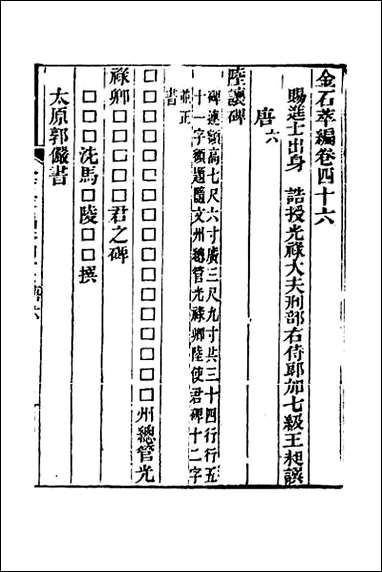 金石萃編卷四十六
賜進士出身 誥授光祿大夫刑部右侍郎加七級王昶譔
唐六
陸讓碑
碑連額高七尺六寸廣三尺九寸共三十四行行五
十一字額題隨文州總管光祿卿陸使君碑十二字
並正
書
□□□□□□□□□□□□州總管光
祿卿□□□□君之碑
□□□洗馬□陵□□撰
太原郭儼書